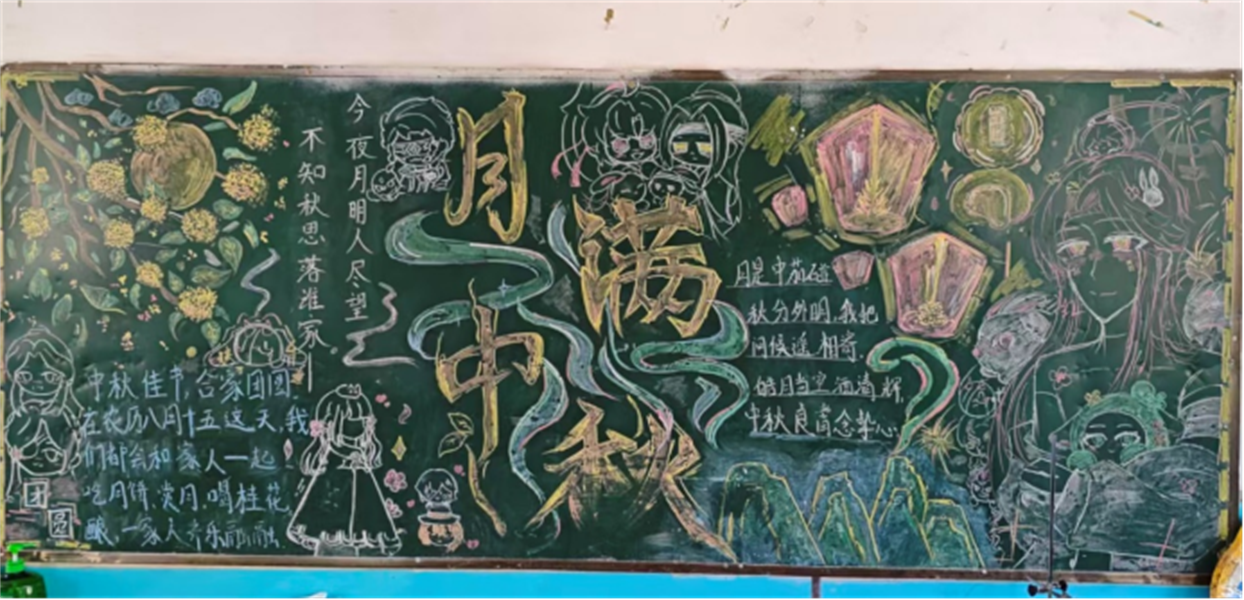 今夜月明人尽望
不知秋思落谁家
月满中秋
中秋佳节,合家团圆.
在农历八月十五这天,我
们都会和家人一起
吃月饼.赏月.喝桂花
酿,一家人齐乐而而融.
团圆
月是中
秋分外明,我把
问候遥相寄.
皓月当空洒清辉,
中秋良宵念挚心